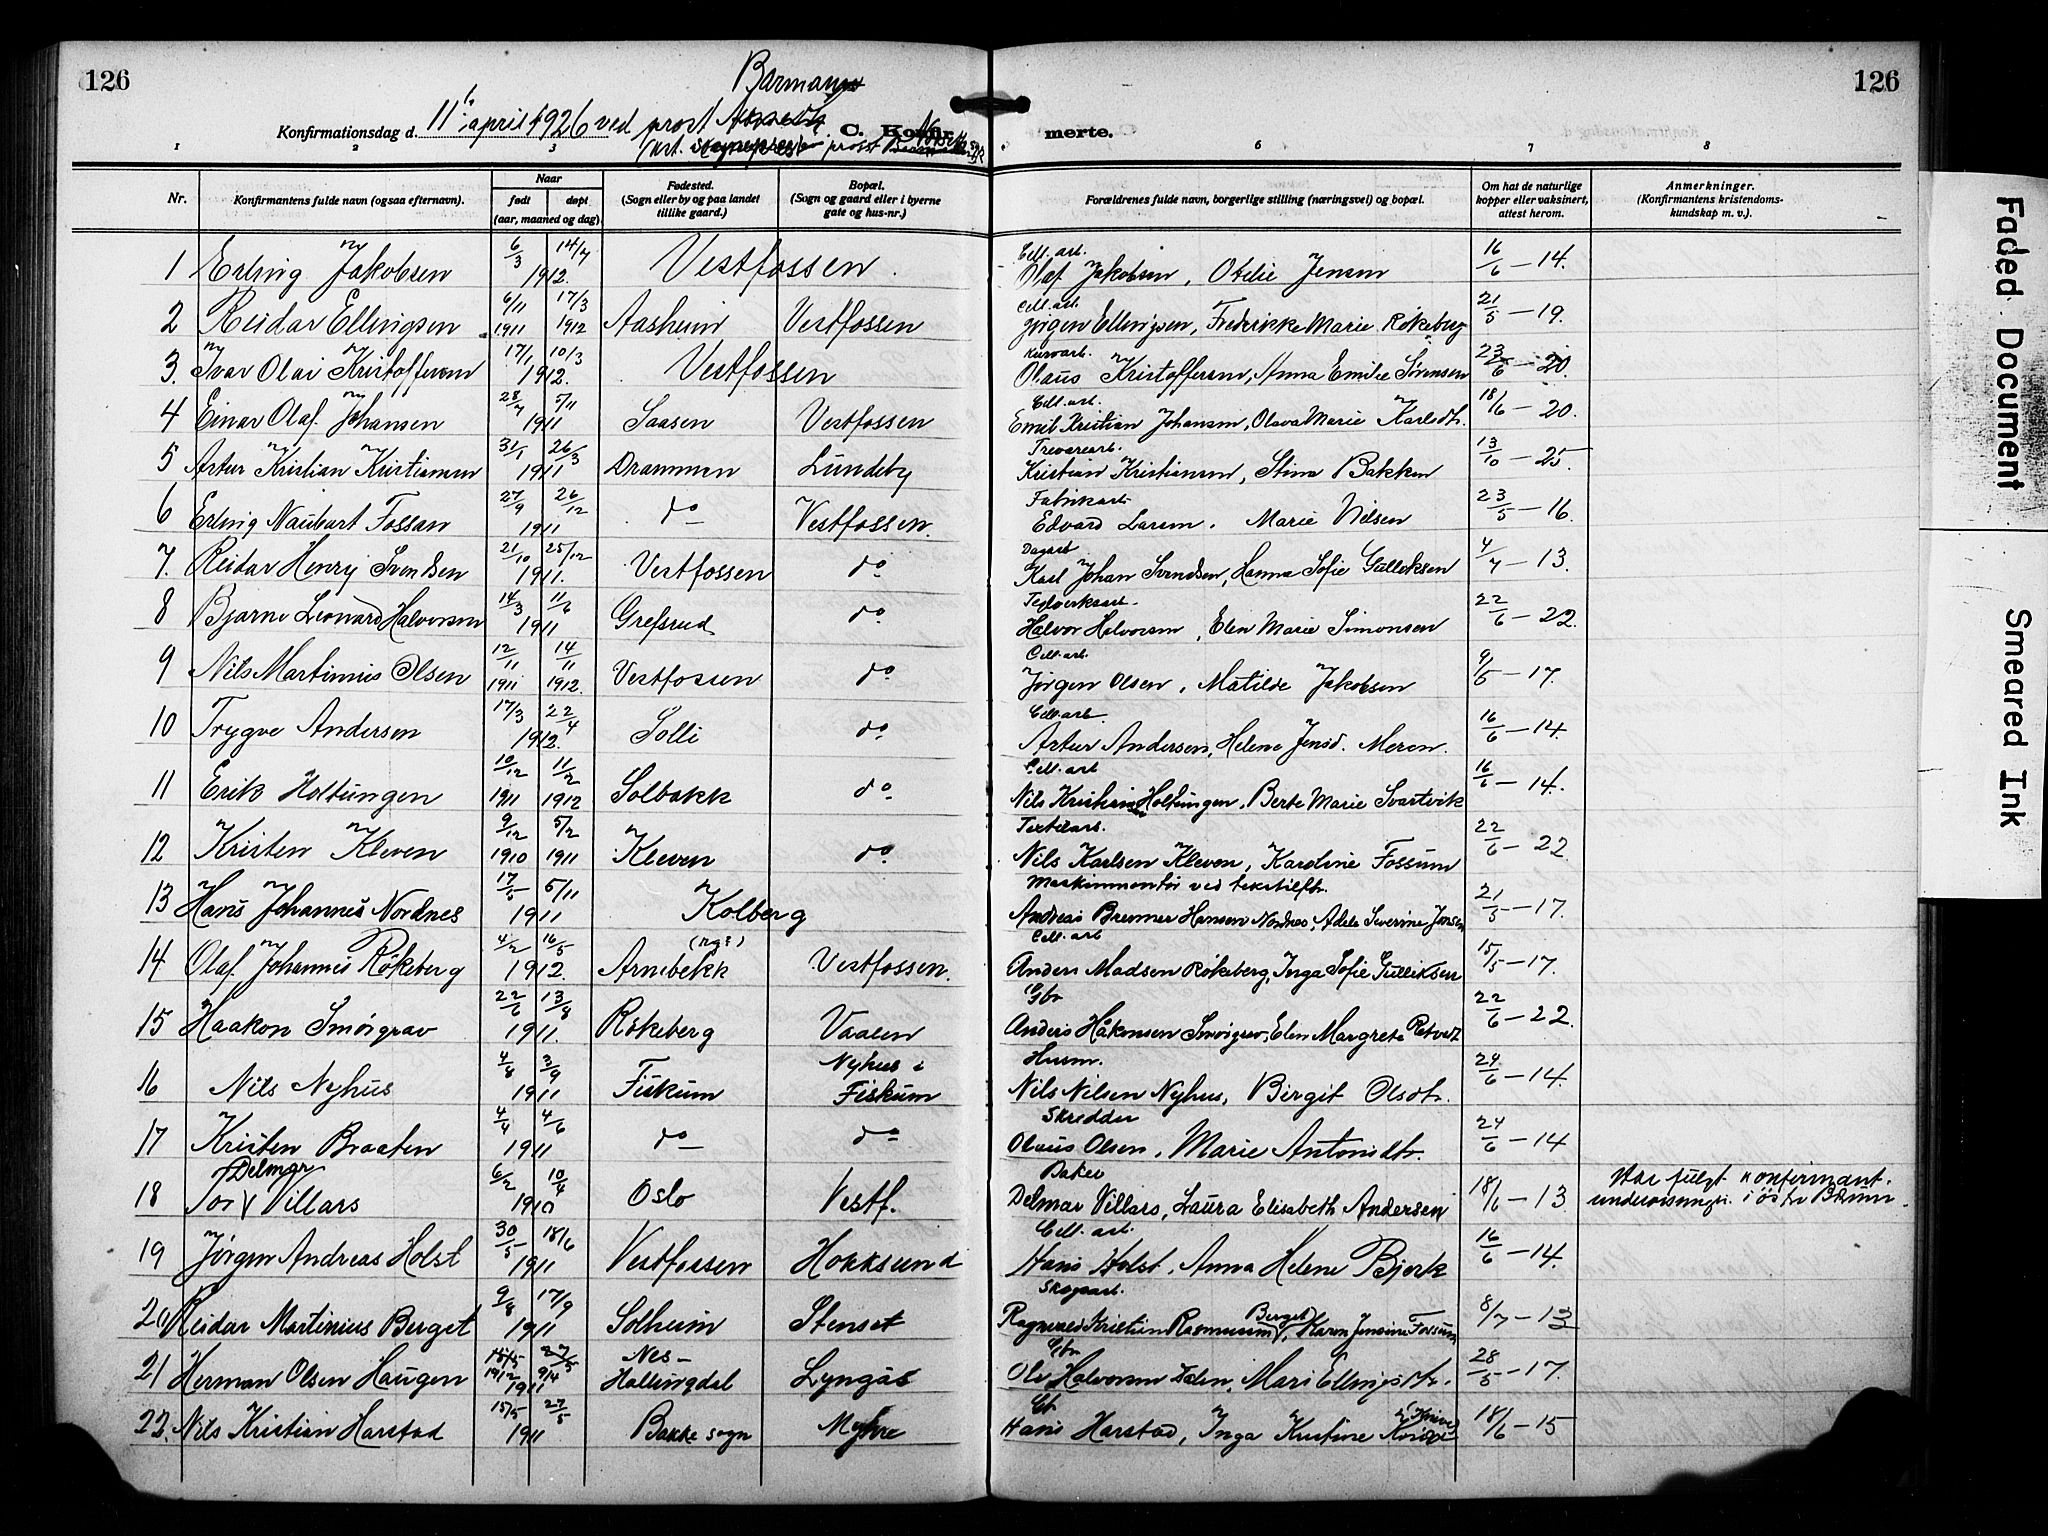 126
126
Barmann
Konfirmationsdag d. 11 april 1926 ved prost C. Konfir merte.
prost
1 2 3 6 7 8
Nr. Konfirmantens fulde navn (ogsaa efternavn). Naar født døpt (aar, maaned og dag) Fødested. (Sogn eller by og paa landet tillike gaard.) Bopæl. (Sogn og gaard eller i byerne gate og hus-nr.) Forældrenes fulde navn, borgerlige stilling (næringsvei) og bopæl. Om hat de naturlige kopper eller vaksinert, attest herom. Anmerkninger. (Konfirmantens kristendoms- kundskap m. v.).
6/3 14/7 Cell. art. 16/6 – 14.
1 Erling Jakobsen 1912. Vestfossen. Olaf Jakobsen, Otilie Jensen
6/11 17/3 Cell. art. 21/5 – 19.
2 Reidar Ellingsen 1911 1912 Aasheim Vestfossen Jørgen Ellingsen, Fredrikke Marie Røkeberg
17/1 10/3 23/6 – 20.
3. Ivar Olai Kristoffersen 1912. Vestfossen Olaus Kristoffersen, Anna Emilie Sørensen
28/7 5/11 Cell. art. 18/6 – 20.
4 Einar Olaf Johansen 1911 Saasen Vestfossen Emil Kristian Johansen, Olava Marie Karlsdtr.
31/1 26/3 Trevareart. 13/10 – 25.
5 Artur Kristian Kristiansen 1911 Drammen Lundeby Kristian Kristiansen, Stina Bakken
27/9 26/12 Fabrikart. 23/5 – 16.
6 Erling Naubert Fossan 1911 do Vestfossen. Edvard Larsen. Marie Nilsen
21/10 25/12 Dagarb 4/7 – 13.
7. Reidar Henry Svendsen 1911. Vestfossen do Karl Johan Svendsen, Hanna Sofie Gulliksen
14/3 11/6 Teglverksart. 22/6 – 22.
8 Bjarne Leonard Halvorsen 1911 Grefsrud do Halvor Halvorsen, Elen Marie Simonsen
12/11 14/11 Cell. art. 9/5 – 17.
9 Nils Martinius Olsen 1911 1912. Vestfossen do Jørgen Olsen, Matilde Jakobsen
17/3 22/4 Cell. art. 16/6 – 14.
10 Trygve Andersen 1912. Solli do Artur Andersen, Helene Jensd. Meren.
10/12 11/2 Cell. art 16/6 – 14.
11 Erik Holtungen 1911 1912 Solbakk do Nils Kristian Holtungen, Berte Marie Svartvik
9/12 5/2 Textilarb. 22/6 – 22
12 Kristen Kleven 1910 1911 Kleven do Nils Karlsen Kleven, Karoline Fossum
17/5 5/11 Maskinmontør ved tekstilfbr. 21/5 – 17.
13 Hans Johannes Nordnes 1911 Kolberg Andreas Brenner Hansen Nordnes, Adele Severine Jensen
4/2 16/5 Cell. art 15/5 – 17.
14 Olaf Johannes Røkeberg 1912. Arnebekk Vestfossen. Anders Madsen Røkeberg, Inga Sofie Gulliksen
22/6 13/8 Gbr 22/6 – 22.
15 Haakon Smørgrav 1911. Røkeberg Vaalen Anders Håkonsen Smørgrav, Elen Margrete Retvedt
4/8 3/9 Husm. 24/6 – 14.
16 Nils Nyhus 1911 Fiskum Nyhus i Fiskum Nils Nilsen Nyhus, Birgit Olsdtr.
4/4 4/6 Skredder 24/6 – 14
17 Kristen Braaten 1911 do do Olaus Olsen, Marie Antonsdtr.
Delmar 6/2 10/4 Baker 18/1 – 13 Har fulgt konfirmant.
18 Tor Villars 1910 Oslo Vestf. Delmar Villars, Laura Elisabeth Andersen undervisningen i østre
30/5 18/6 Cell. art. 16/6 – 14.
19 Jørgen Andreas Holst 1911 Vestfossen Hokksund Hans Holst, Anna Helene Bjerk
9/8 17/9 Skogsart. 8/7 – 13
20 Reidar Martinius Berget 1911 Solheim Stenset Ragnvald Kristian Rasmussen Berget, Karen Jensine Fossum
19/12 9/4 Nes– Gbr 28/5 – 17.
21 Herman Olsen Haugen 1911 Hallingdal Lyngås Ole Halvorsen Dalen, Mari Ellingsdtr.
15/5 27/5 18/1 – 15
22. Nils Kristian Harstad 1911 Bakke sogn Myhre Hans Harstad, Inga Kristine
Faded Document
Smeared Ink